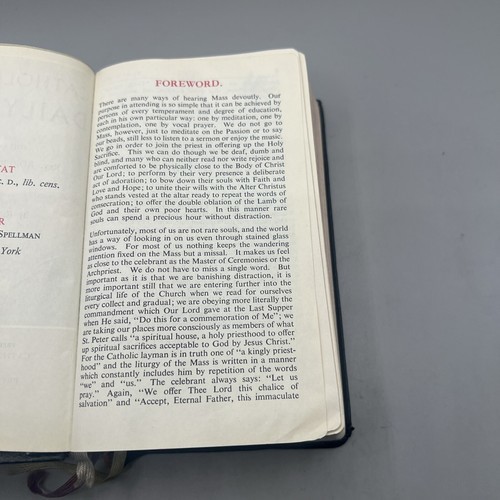 TAT
C. D., lib. cens.
R
SPELLMAN
York
FOREWORD.
There are many ways of hearing Mass devoutly. Our
purpose in attending is so simple that it can be achieved by
persons of every temperament and degree of education,
each in his own particular way: one by meditation, one by
contemplation, one by vocal prayer. We do not go to
Mass, however, just to meditate on the Passion or to say
our beads, still less to listen to a sermon or enjoy the music.
We go in order to join the priest in offering up the Holy
Sacrifice. This we can do though we be deaf, dumb and
blind, and many who can neither read nor write rejoice and
are comforted to be physically close to the Body of Christ
Our Lord; to perform by their very presence a deliberate
act of adoration; to bow down their souls with Faith and
Love and Hope; to unite their wills with the Alter Christus
who stands vested at the altar ready to repeat the words of
consecration; to offer the double oblation of the Lamb of
God and their own poor hearts. In this manner rare
souls can spend a precious hour without distraction.
Unfortunately, most of us are not rare souls, and the world
has a way of looking in on us even through stained glass
windows. For most of us nothing keeps the wandering
attention fixed on the Mass but a missal. It makes us feel
as close to the celebrant as the Master of Ceremonies or the
Archpriest. We do not have to miss a single word. But
important as it is that we are banishing distraction, it is
more important still that we are entering further into the
liturgical life of the Church when we read for ourselves
every collect and gradual; we are obeying more literally the
commandment which Our Lord gave at the Last Supper
when He said, "Do this for a commemoration of Me"; we
are taking our places more consciously as members of what
St. Peter calls "a spiritual house, a holy priesthood to offer
up spiritual sacrifices acceptable to God by Jesus Christ."
For the Catholic layman is in truth one of "a kingly priest-
hood" and the liturgy of the Mass is written in a manner
which constantly includes him by repetition of the words
"we" and "us." The celebrant always says: "Let us
pray." Again, "We offer Thee Lord this chalice of
salvation" and "Accept, Eternal Father, this immaculate